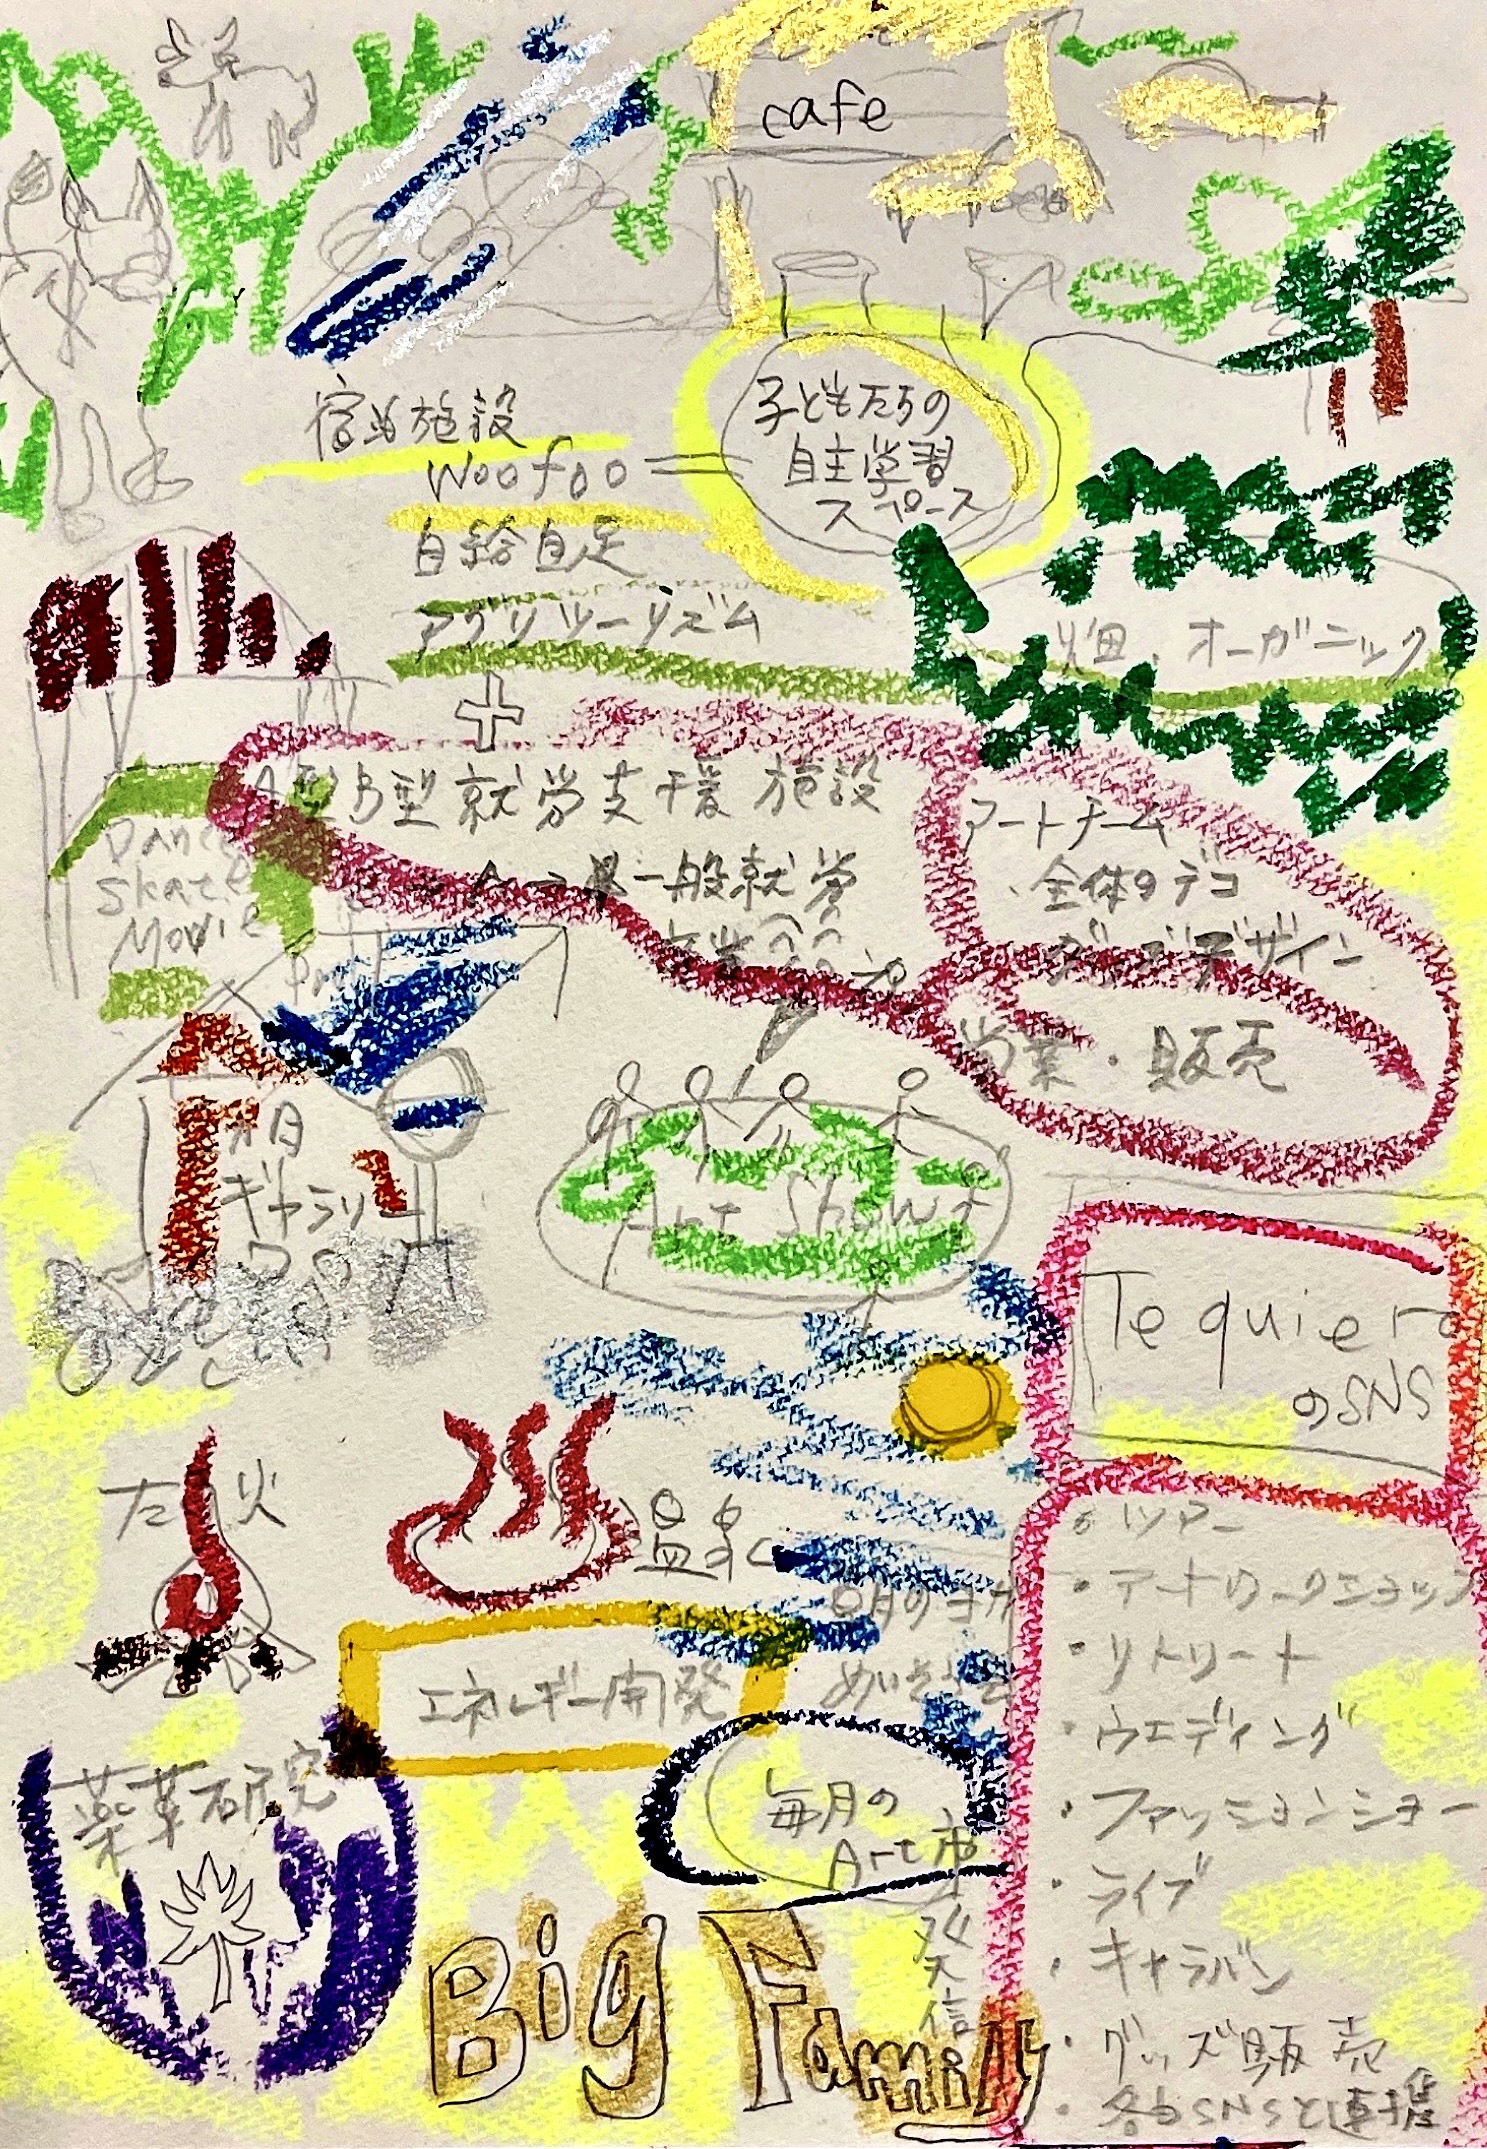 cafe
宿泊施設
woofoo
子どもたちの
自主学習
スペース
自給自足
アグリツーリズム
畑、オーガニック
+
A型B型就労支援施設
一般就労
アートチーム
全体のデコ
デザイン
営業・販売
Dance
Skate
Movie
ギャラリー
Art Show
Te quiero
のSNS
たき火
温泉
エネルギー開発
薬草研究
毎月の
Art市
発信
Big Family
・ツアー
・アートワークショップ
・リトリート
・ウエディング
・ファッションショー
・ライブ
・キャラバン
・グッズ販売
・各自SNSと連携